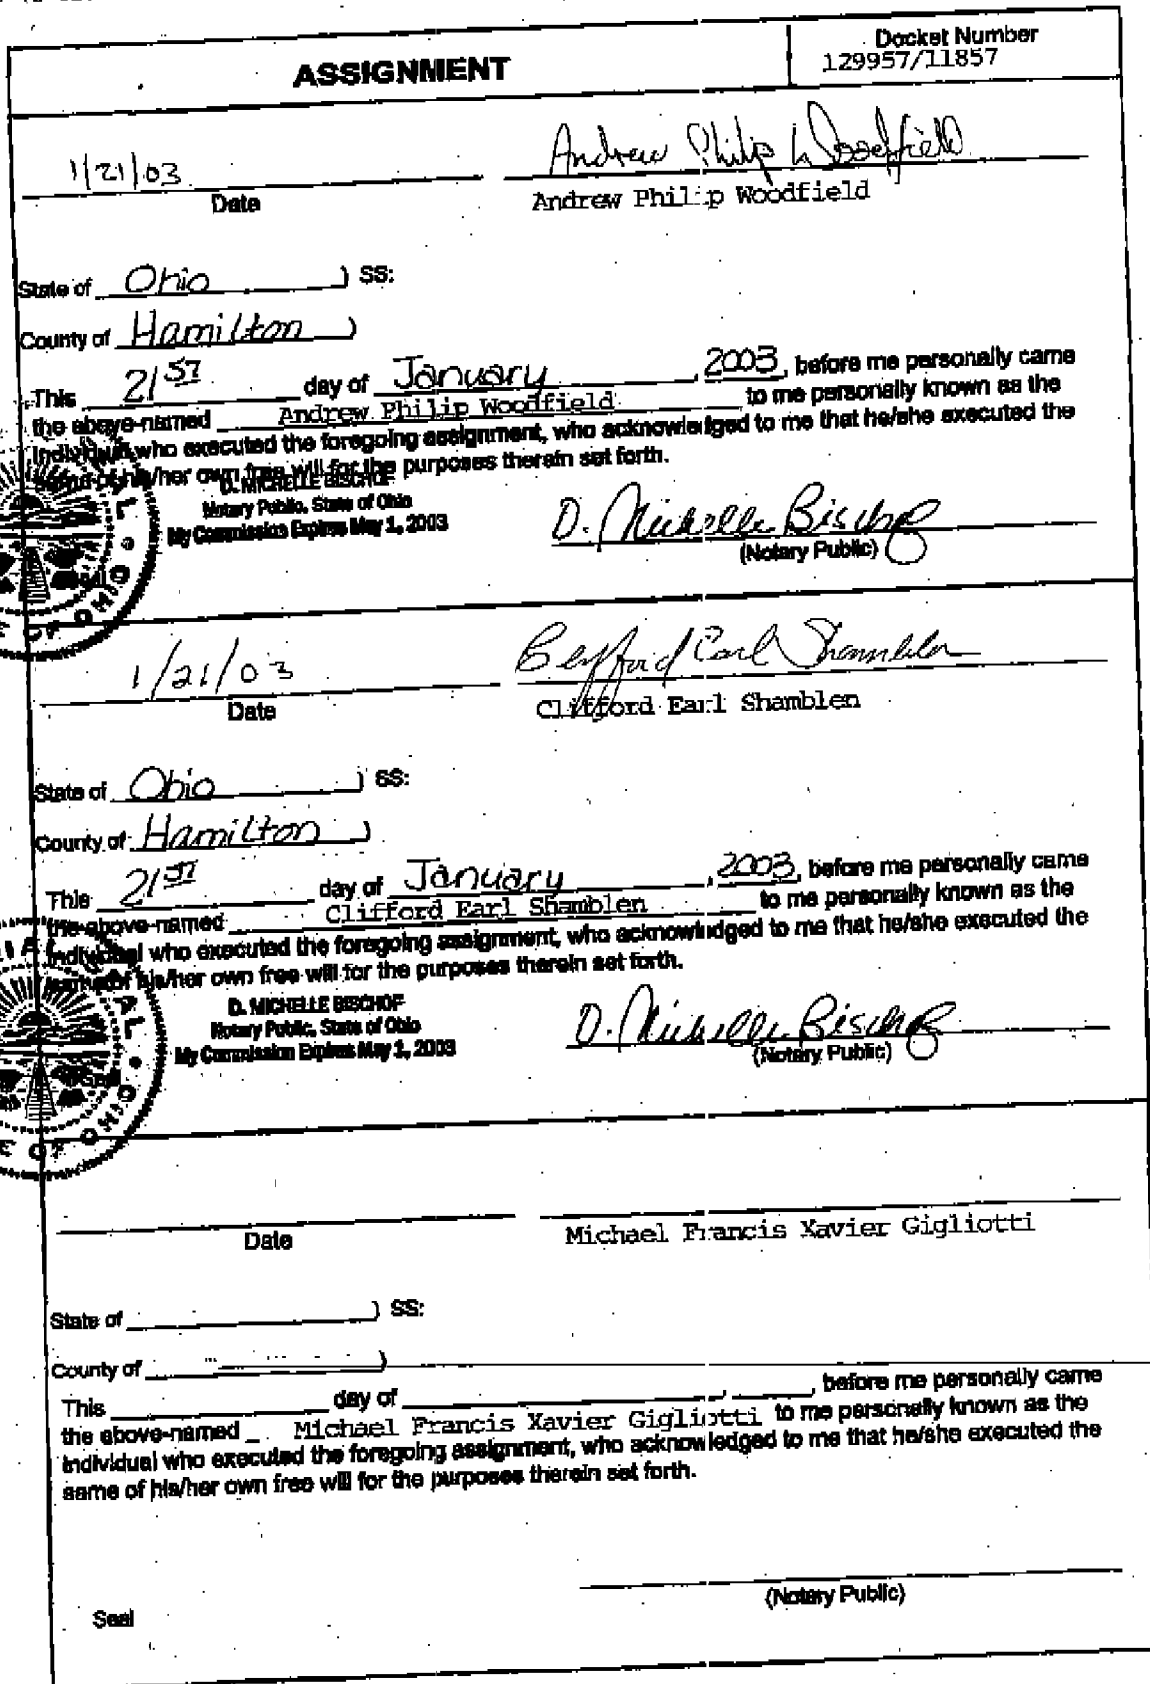 Docket Number
ASSIGNMENT
129957/11857
1/21/03 Andrew Philip Woodfield
Date Andrew Philip Woodfield
State of Ohio ) SS:
County of Hamilton )
This 21ST day of January, 2003, before me personally came
the above-named Andrew Philip Woodfield to me personally known as the
individual who executed the foregoing assignment, who acknowledged to me that he/she executed the
same of his/her own free will for the purposes therein set forth.
D. MICHELLE BISCHOF
Notary Public, State of Ohio
My Commission Expires May 1, 2003
D. Michelle Bischof
(Notary Public)
Seal
OF OHIO
1/21/03 Clifford Earl Shamblen
Date Clifford Earl Shamblen
State of Ohio ) SS:
County of Hamilton )
This 21ST day of January, 2003, before me personally came
the above-named Clifford Earl Shamblen to me personally known as the
individual who executed the foregoing assignment, who acknowledged to me that he/she executed the
same of his/her own free will for the purposes therein set forth.
D. MICHELLE BISCHOF
Notary Public, State of Ohio
My Commission Expires May 1, 2003
D. Michelle Bischof
(Notary Public)
Seal
OF OHIO
Date Michael Francis Xavier Gigliotti
State of ) SS:
County of )
This day of , , before me personally came
the above-named Michael Francis Xavier Gigliotti to me personally known as the
individual who executed the foregoing assignment, who acknowledged to me that he/she executed the
same of his/her own free will for the purposes therein set forth.
(Notary Public)
Seal